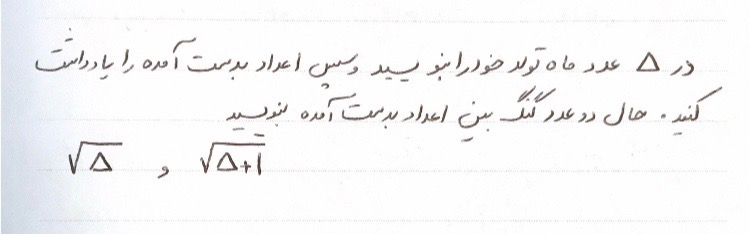 در △ عدد ماه تولد خود را بنویسید و سپس اعداد بدست آمده را یادداشت
کنید. حال دو عدد گنگ بین اعداد بدست آمده بنویسید
√△ و √△+1